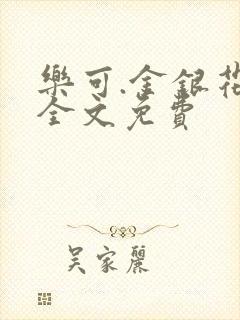 樂可.金銀花
全文免費
吳家麗